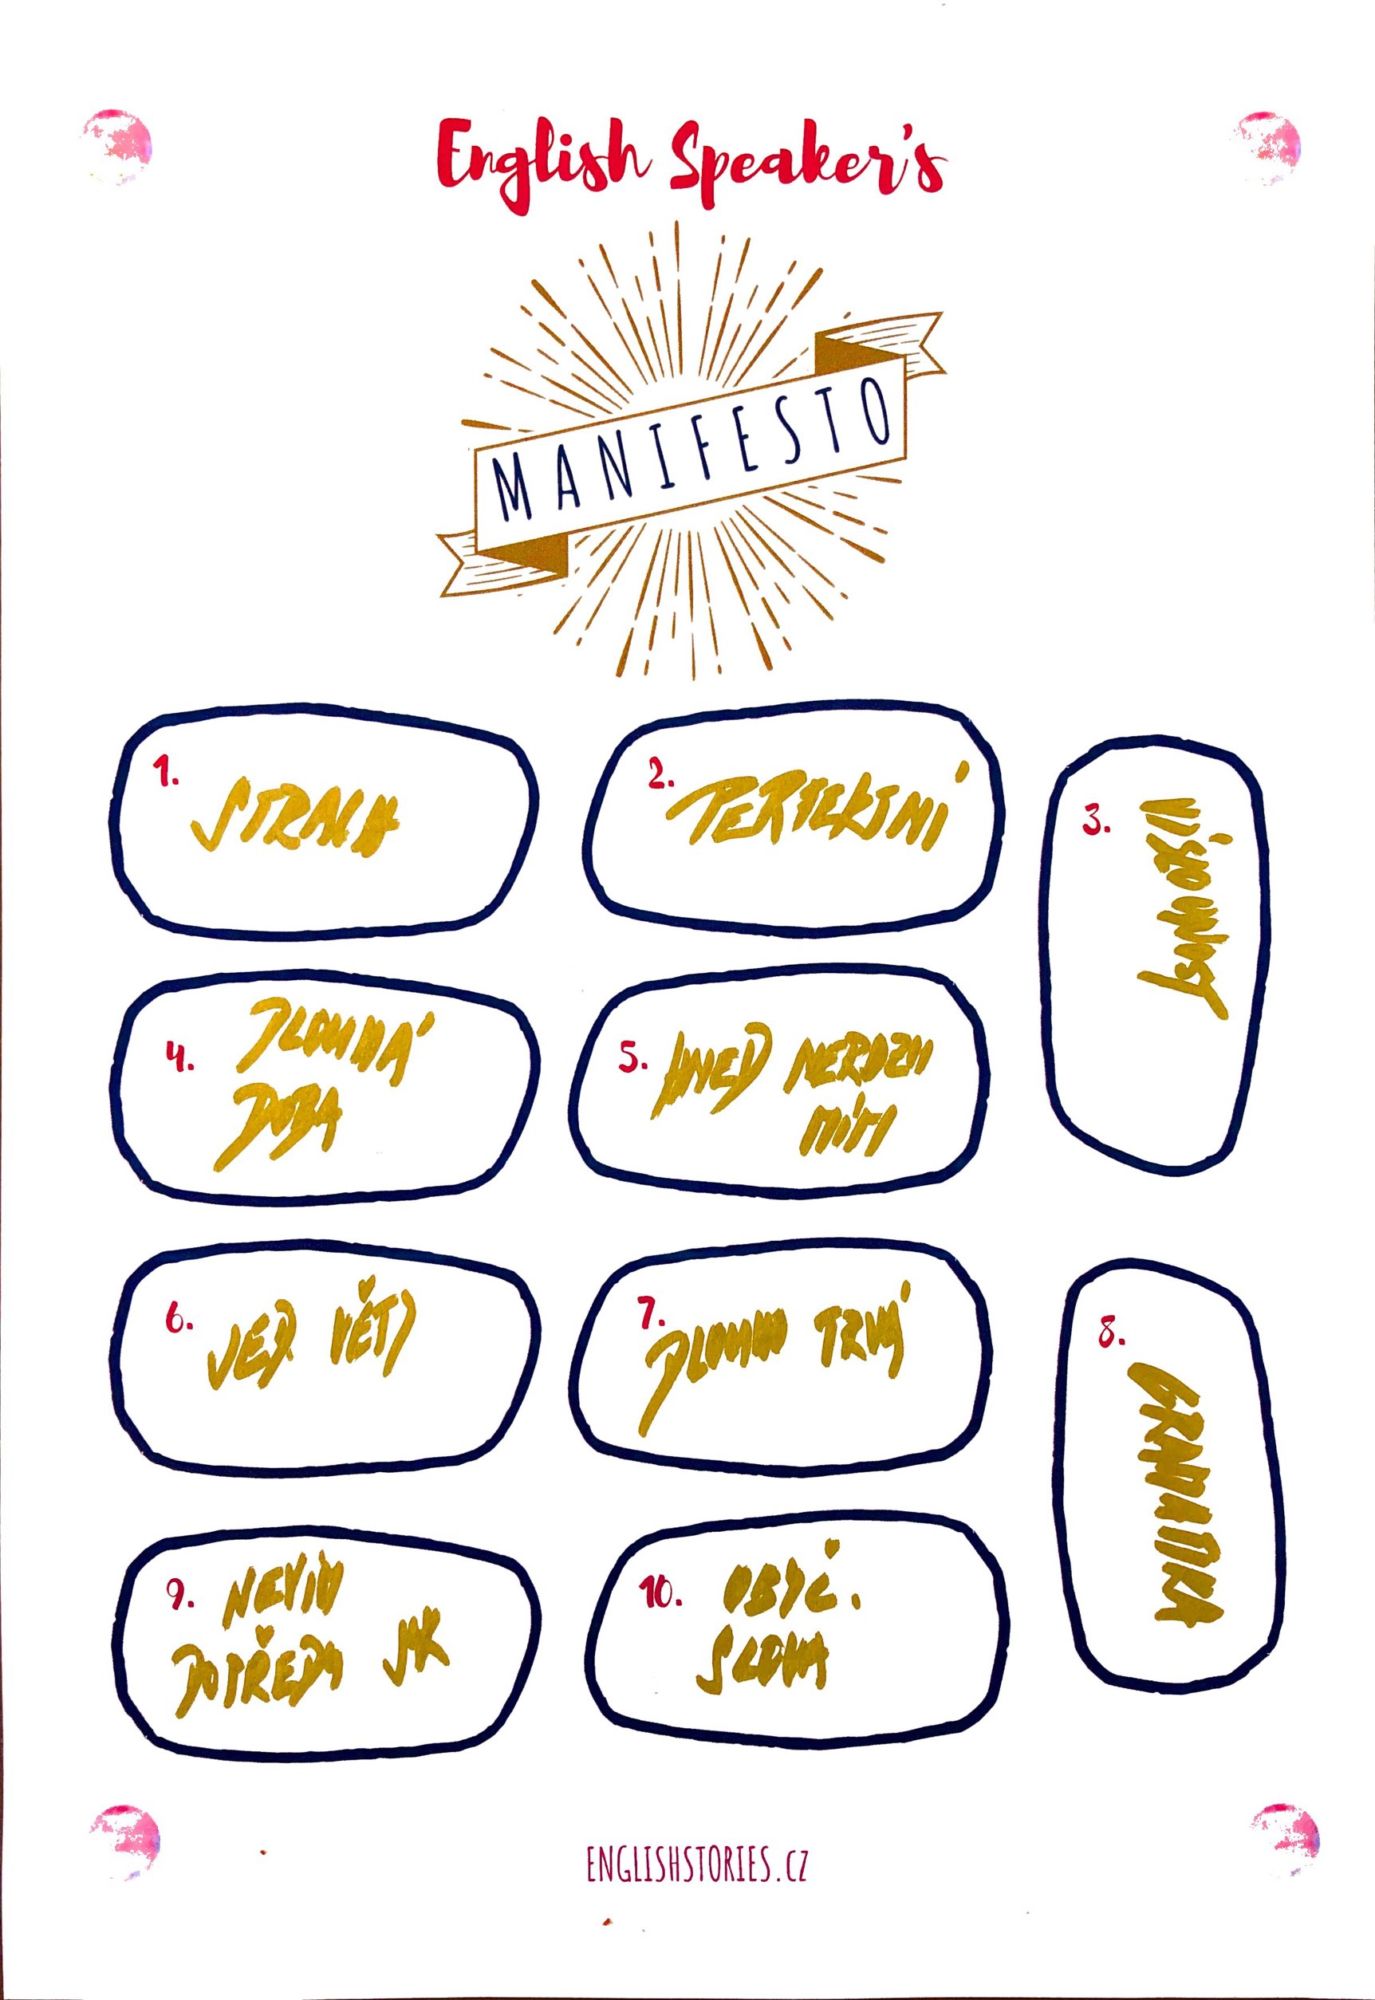 English Speaker's
MANIFESTO
1.
STRACH
2.
PERFEKTNÍ
3.
4.
DLOUHÁ
DOBA
5.
HNED NEROZU
MÍM
6.
JED. VĚTY
7.
DLOUHO TRVÁ
8.
GRAMATIKA
9.
NEVÍM
DOPŘEDU JAK
10.
OBYČ.
SLOVA
ENGLISHSTORIES.CZ